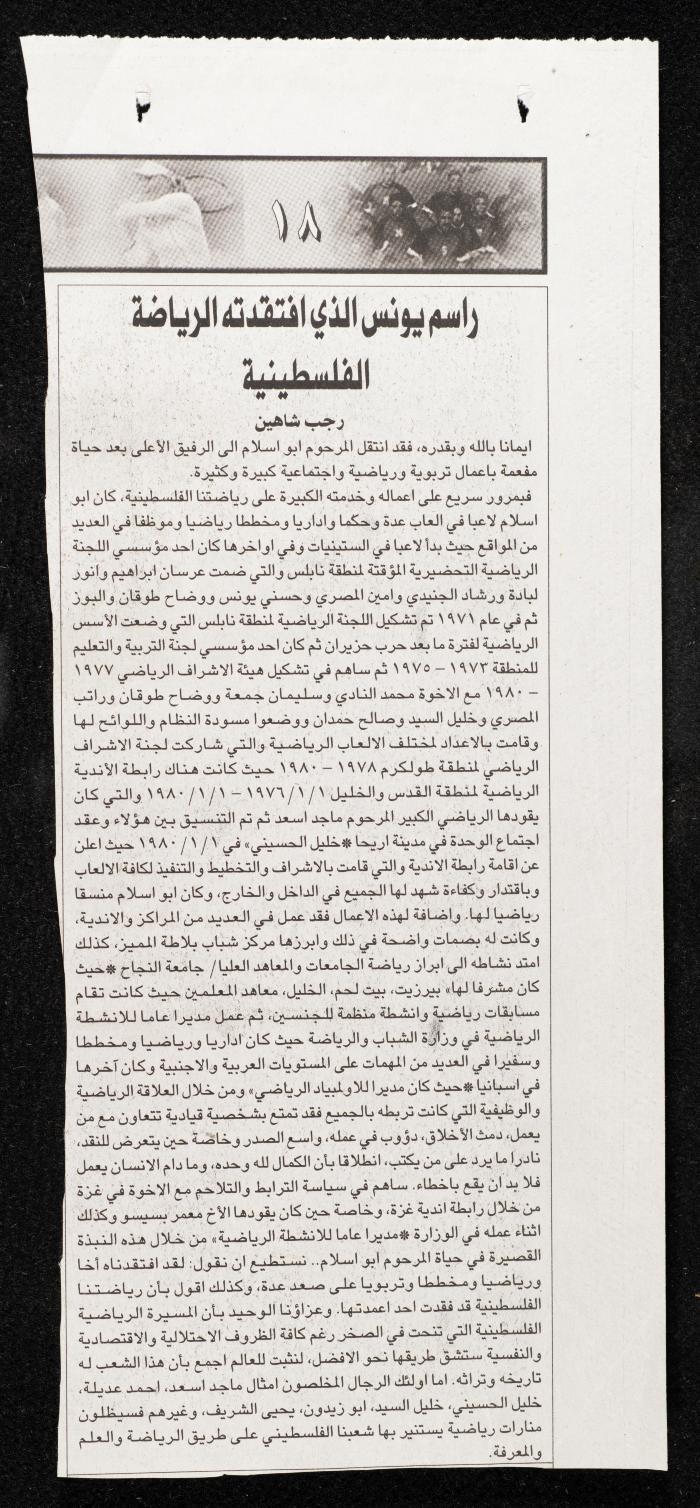 ١٨
راسم يونس الذي افتقدته الرياضة
الفلسطينية
رجب شاهين
ايمانا بالله وبقدره، فقد انتقل المرحوم ابو اسلام الى الرفيق الأعلى بعد حياة
مفعمة باعمال تربوية ورياضية واجتماعية كبيرة وكثيرة.
فبمرور سريع على اعماله وخدمته الكبيرة على رياضتنا الفلسطينية، كان ابو
اسلام لاعبا في العاب عدة وحكما واداريا ومخططا رياضيا وموظفا في العديد
من المواقع حيث بدأ لاعبا في الستينيات وفي اواخرها كان احد مؤسسي اللجنة
الرياضية التحضيرية المؤقتة لمنطقة نابلس والتي ضمت عرسان ابراهيم وانور
لبادة ورشاد الجنيدي وامين المصري وحسني يونس ووضاح طوقان والبوز
ثم في عام ١٩٧١ تم تشكيل اللجنة الرياضية لمنطقة نابلس التي وضعت الأسس
الرياضية لفترة ما بعد حرب حزيران ثم كان احد مؤسسي لجنة التربية والتعليم
للمنطقة ١٩٧٣ – ١٩٧٥ ثم ساهم في تشكيل هيئة الاشراف الرياضي ١٩٧٧
– ١٩٨٠ مع الاخوة محمد النادي وسليمان جمعة ووضاح طوقان وراتب
المصري وخليل السيد وصالح حمدان ووضعوا مسودة النظام واللوائح لها
وقامت بالاعداد لمختلف الالعاب الرياضية والتي شاركت لجنة الاشراف
الرياضي لمنطقة طولكرم ١٩٧٨ – ١٩٨٠ حيث كانت هناك رابطة الأندية
الرياضية لمنطقة القدس والخليل ١/١/١٩٧٦ – ١/١/١٩٨٠ والتي كان
يقودها الرياضي الكبير المرحوم ماجد اسعد ثم تم التنسيق بين هؤلاء وعقد
اجتماع الوحدة في مدينة اريحا *خليل الحسيني» في ١/١/١٩٨٠ حيث اعلن
عن اقامة رابطة الاندية والتي قامت بالاشراف والتخطيط والتنفيذ لكافة الالعاب
وباقتدار وكفاءة شهد لها الجميع في الداخل والخارج، وكان ابو اسلام منسقا
رياضيا لها. واضافة لهذه الاعمال فقد عمل في العديد من المراكز والاندية،
وكانت له بصمات واضحة في ذلك وابرزها مركز شباب بلاطة المميز، كذلك
امتد نشاطه الى ابراز رياضة الجامعات والمعاهد العليا/ جامعة النجاح *حيث
كان مشرفا لها» بيرزيت، بيت لحم، الخليل، معاهد المعلمين حيث كانت تقام
مسابقات رياضية وانشطة منظمة للجنسين، ثم عمل مديرا عاما للانشطة
الرياضية في وزارة الشباب والرياضة حيث كان اداريا ورياضيا ومخططا
وسفيرا في العديد من المهمات على المستويات العربية والاجنبية وكان آخرها
في اسبانيا *حيث كان مديرا للاولمبياد الرياضي» ومن خلال العلاقة الرياضية
والوظيفية التي كانت تربطه بالجميع فقد تمتع بشخصية قيادية تتعاون مع من
يعمل، دمث الأخلاق، دؤوب في عمله، واسع الصدر وخاصة حين يتعرض للنقد،
نادرا ما يرد على من يكتب، انطلاقا بأن الكمال لله وحده، وما دام الانسان يعمل
فلا بد ان يقع باخطاء. ساهم في سياسة الترابط والتلاحم مع الاخوة في غزة
من خلال رابطة اندية غزة، وخاصة حين كان يقودها الأخ معمر بسيسو وكذلك
اثناء عمله في الوزارة *مديرا عاما للانشطة الرياضية» من خلال هذه النبذة
القصيرة في حياة المرحوم ابو اسلام.. نستطيع ان نقول: لقد افتقدناه أخا
ورياضيا ومخططا وتربويا على صعد عدة، وكذلك اقول بأن رياضتنا
الفلسطينية قد فقدت احد اعمدتها. وعزاؤنا الوحيد بأن المسيرة الرياضية
الفلسطينية التي تنحت في الصخر رغم كافة الظروف الاحتلالية والاقتصادية
والنفسية ستشق طريقها نحو الافضل، لنثبت للعالم اجمع بأن هذا الشعب له
تاريخه وتراثه. اما اولئك الرجال المخلصون امثال ماجد اسعد، احمد عديلة،
خليل الحسيني، خليل السيد، ابو زيدون، يحيى الشريف، وغيرهم فسيظلون
منارات رياضية يستنير بها شعبنا الفلسطيني على طريق الرياضة والعلم
والمعرفة.